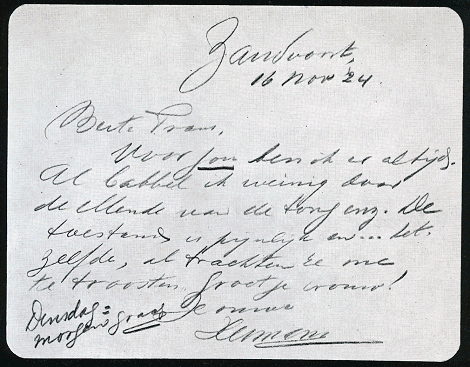 Zandvoort,
16 Nov 24.
Beste Frans,
Voor jou ben ik er altijd.
Al babbel ik weinig door
de ellende van de tong enz. De
toestand is pijnlijk en... het-
zelfde, al trachten ze me
te troosten. Groetje vrouw!
Dinsdag=
morgen graag